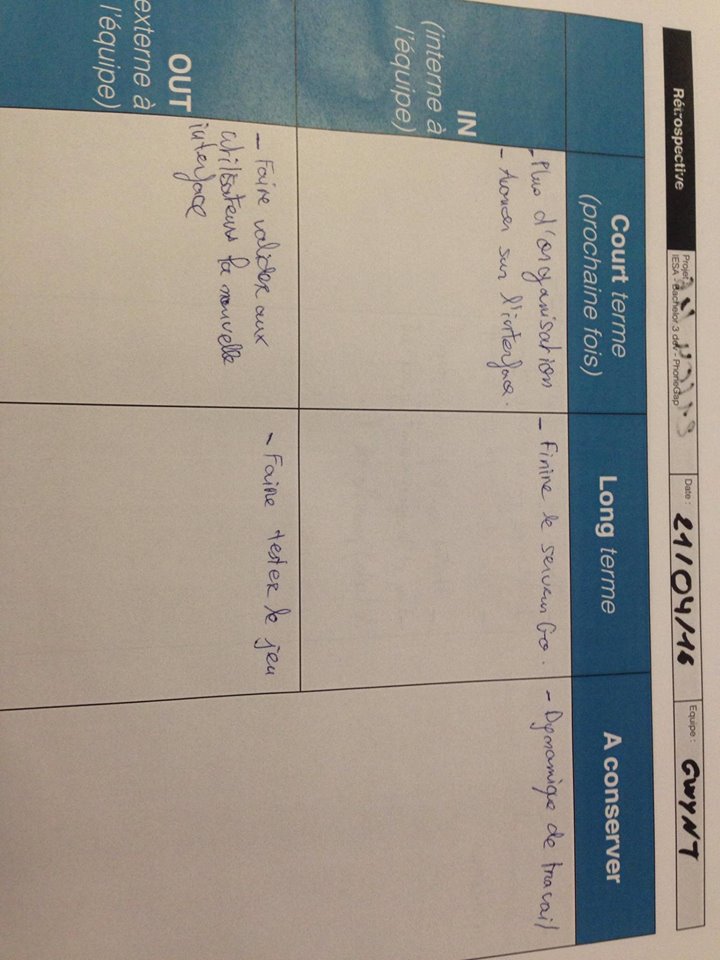 Rétrospective
Projet :
IESA - Bachelor 3 dev - PhoneGap
Date : 21/04/16
Equipe : GWYNT
Court terme
(prochaine fois)
Long terme
A conserver
IN
(interne à
l'équipe)
- Plus d'organisation
- Avancer sur l'interface.
- Finire le serveur Go.
- Dynamique de travail
OUT
externe à
l'équipe)
- Faire valider aux
utilisateurs la nouvelle
interface
- Faire tester le jeu